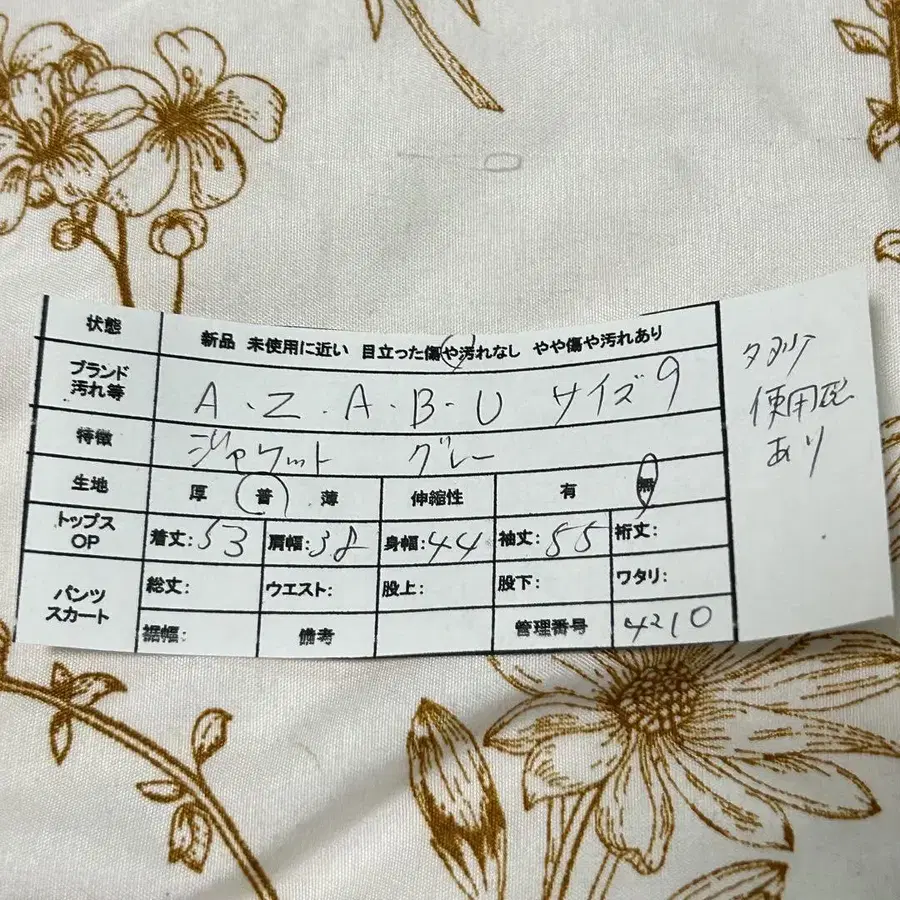 状態 新品 未使用に近い 目立った傷や汚れなし やや傷や汚れあり
ブランド
汚れ等
A・Z・A・B・U サイズ9
特徴 ジャケット グレー
生地 厚 普 薄 伸縮性 有 無
トップス
OP
着丈:53 肩幅:38 身幅:44 袖丈:55 裄丈:
パンツ
スカート
総丈: ウエスト: 股上: 股下: ワタリ:
裾幅: 備考 管理番号 4210
使用感
あり